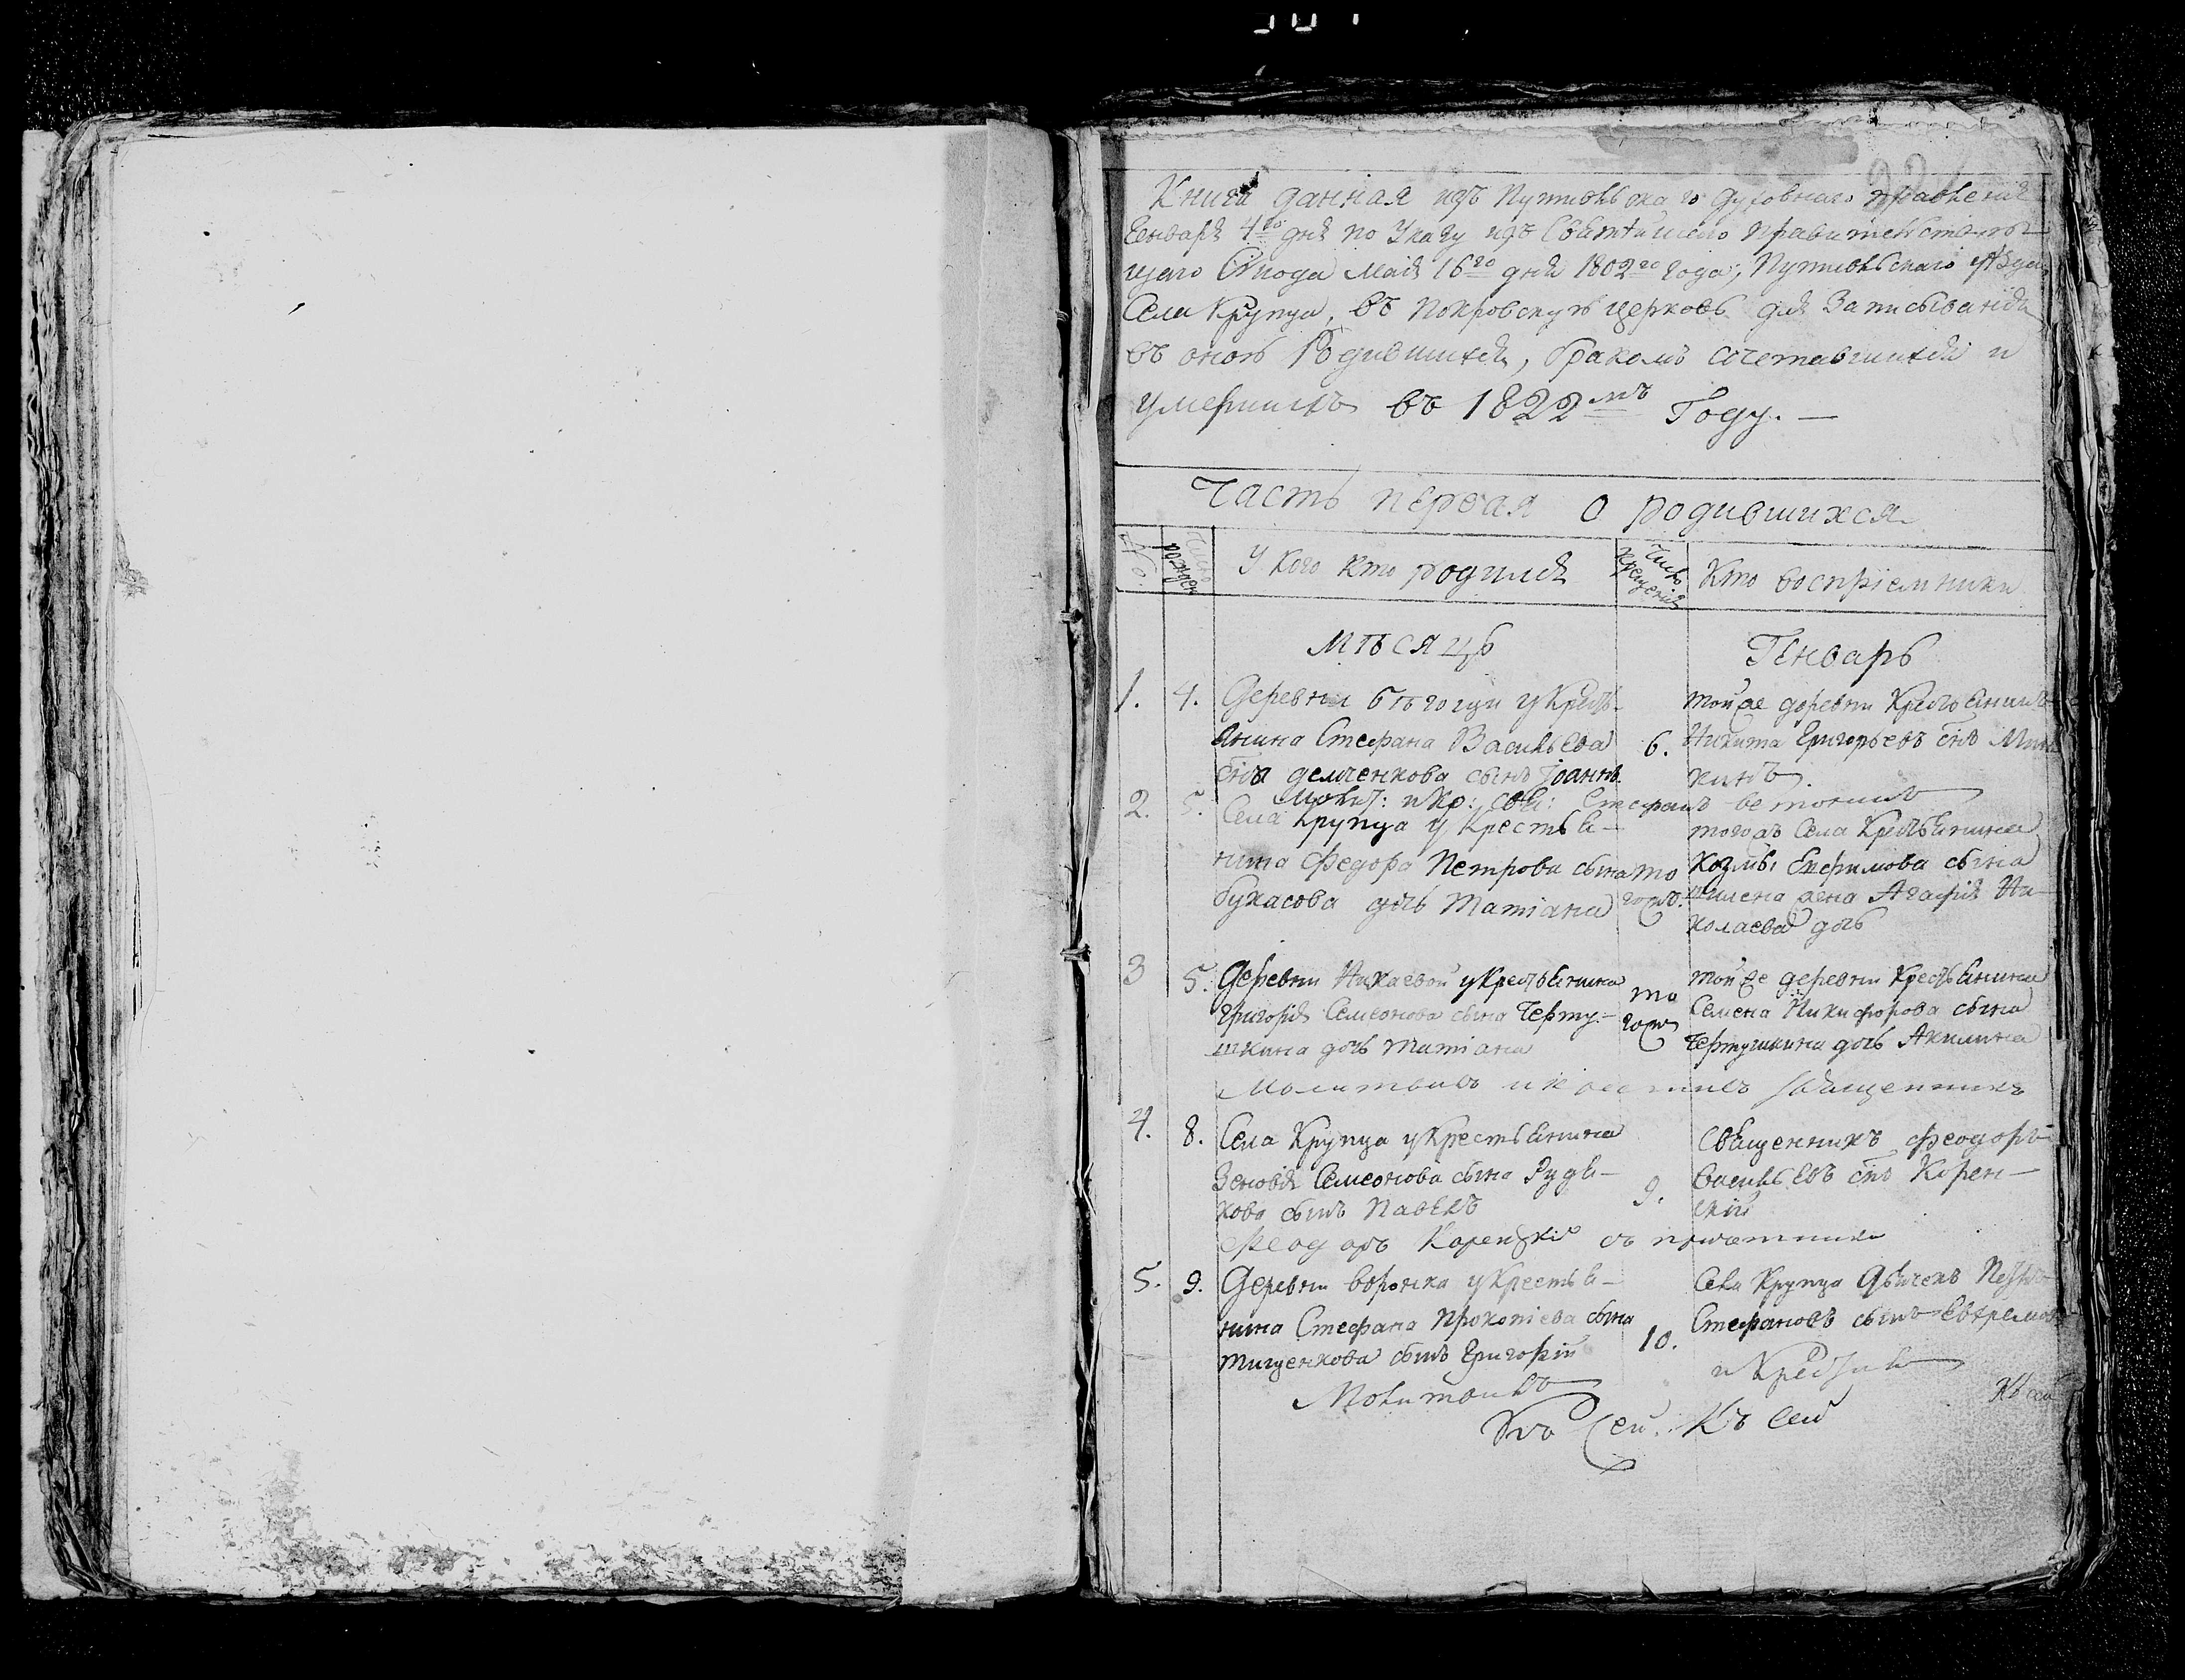 Книга данная изъ Путивльскаго духовнаго правленія
Генваря 4го дня по Указу изъ Святѣйшего Правительствую-
щего Синода Маія 16го дня 1802го года, Путивльскаго уѣзда
Села Крупца, въ Покровскую церковь для записыванія
въ оной Родившихся, бракомъ сочетавшихся и
умершихъ въ 1822мъ Году. —
Часть первая о родившихся
№. Число рожден У кого кто родился Число крещенія Кто воспріемники
мѣсяцъ Генварь
1. 4. Деревни Бѣгощи у Кресть-
янина Стефана Васильева
сна демченкова сынъ Іоаннъ.
6. той же деревни Крестьянинъ
Никита Григорьевъ снъ
кинъ.
Молит: и Кр: свя: Стефанъ
2. 5. Села Крупца у Крестья-
нина Федора Петрова сына
букасова дочь Татіана
того ж.
того жъ Села Крестьянина
Козмы Ефимова сына
жена Агафія Ни-
колаева дочь
3 5. Деревни Нихаевой у Крестьянина
Григорія Семеонова сына Черту-
шкина дочь Татіана
того ж
той же деревни Крестьянина
Семена Никифорова сына
Чертушкина дочь Акилина
Молитвилъ и крестилъ священникъ
4. 8. Села Крупца у Крестьянина
Зеновія Семеонова сына Рудя-
кова сынъ Павелъ
9.
Священникъ Феодоръ
Васильевъ снъ Корен-
скій
Феодоръ Коренскій съ причетники
5. 9. Деревни Воронка у Крестья-
нина Стефана Прокопіева сына
Тищенкова сынъ Григорій
10.
Села Крупца Дьячекъ Петръ
Стефановъ сынъ Евфремовъ
Молитвилъ и Крестилъ
Къ сей
Къ сей. Къ сей